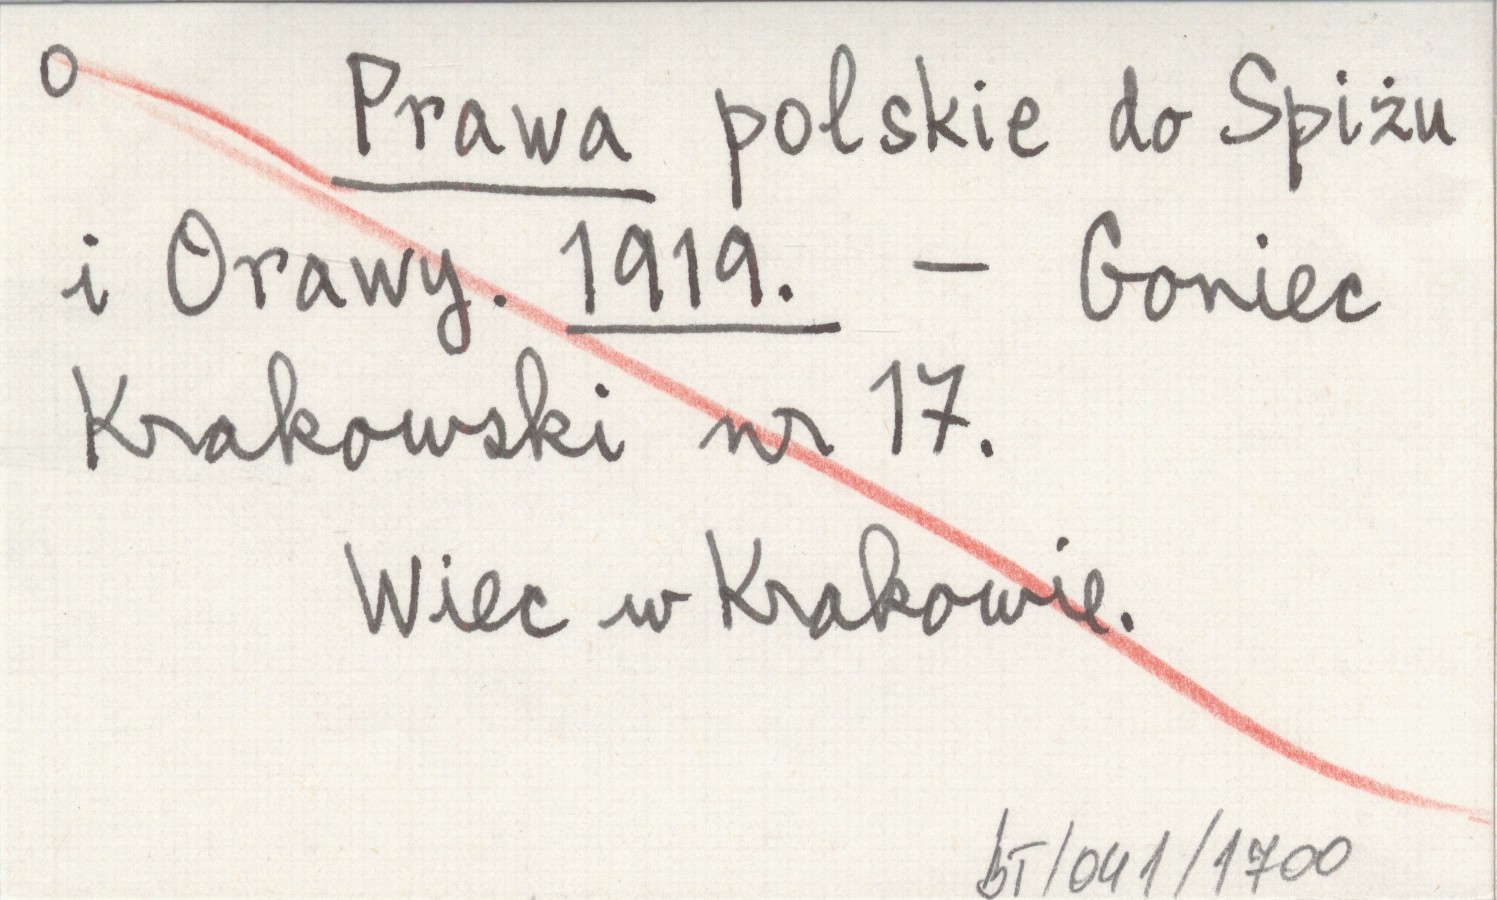 O Prawa polskie do Spiżu
i Orawy. 1919. – Goniec
Krakowski nr 17.
Wiec w Krakowie.
bT/041/1700